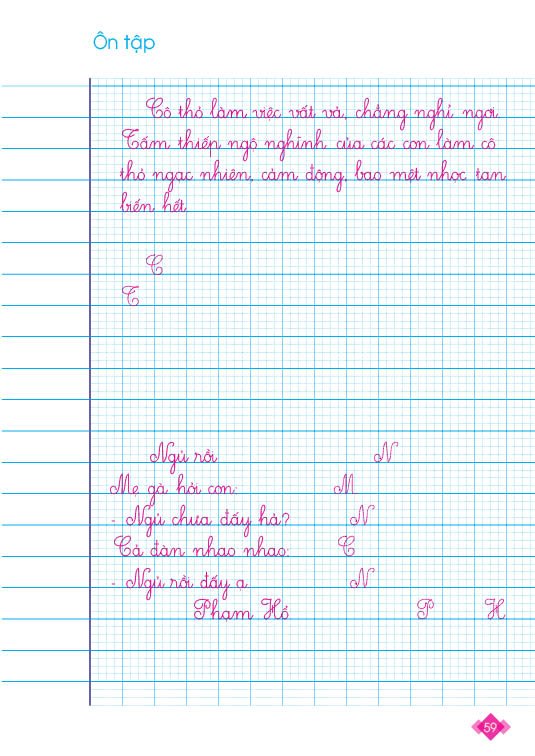 Ôn tập
Cô thỏ làm việc vất vả, chẳng nghỉ ngơi.
Tấm thiếp ngộ nghĩnh của các con làm cô
thỏ ngạc nhiên, cảm động, bao mệt nhọc tan
biến hết.
C
T
Ngủ rồi N
Mẹ gà hỏi con: M
- Ngủ chưa đấy hả? N
Cả đàn nhao nhao: C
- Ngủ rồi đấy ạ N
Phạm Hổ P H
59